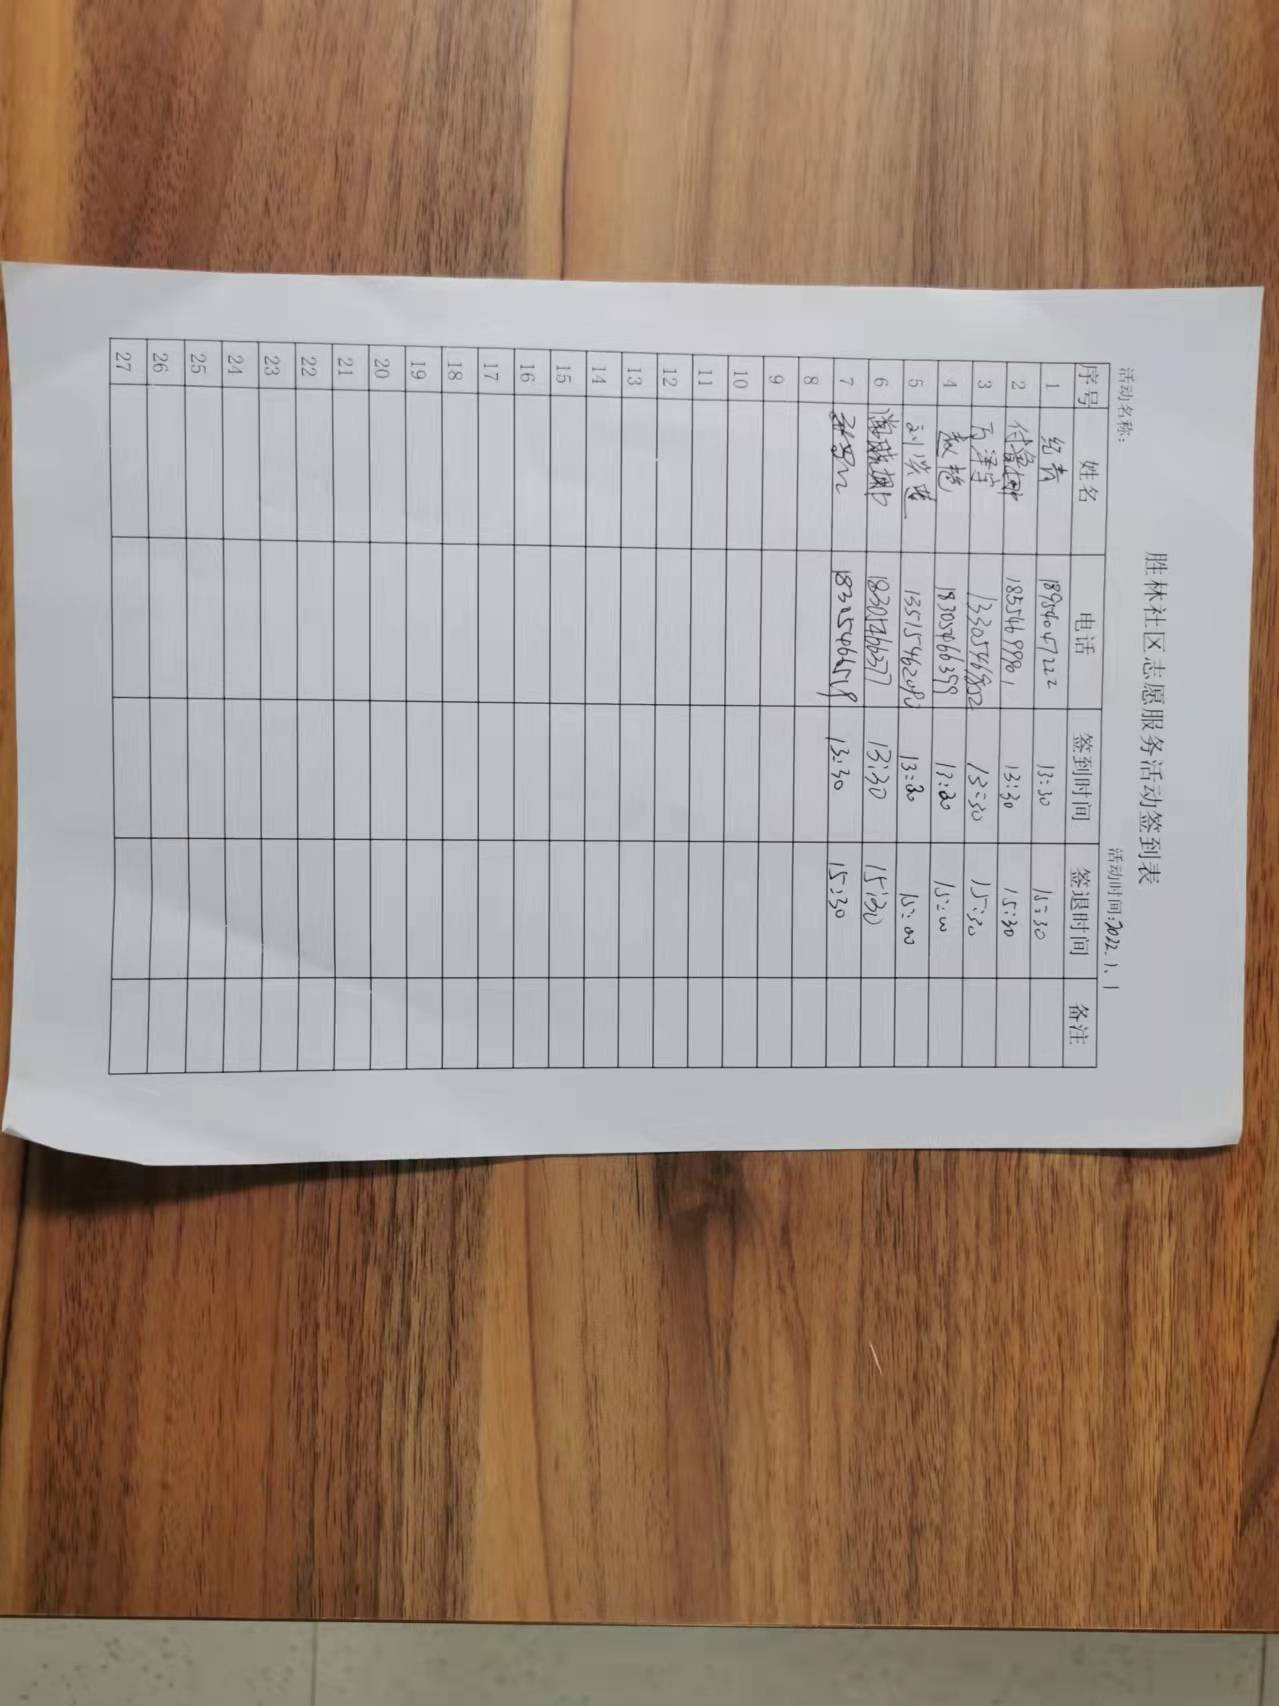 胜林社区志愿服务活动签到表
活动名称： 活动时间:2022.1.1
序号 姓名 电话 签到时间 签退时间 备注
1 纪青 18954047222 13:30 15:30
2 13:30 15:30
3 13:30 15:30
4 赵艳 18305466399 13:20 15:00
5 刘洪莲 13:20 15:00
6 18305466377 13:30 15:30
7 13:30 15:30
8
9
10
11
12
13
14
15
16
17
18
19
20
21
22
23
24
25
26
27